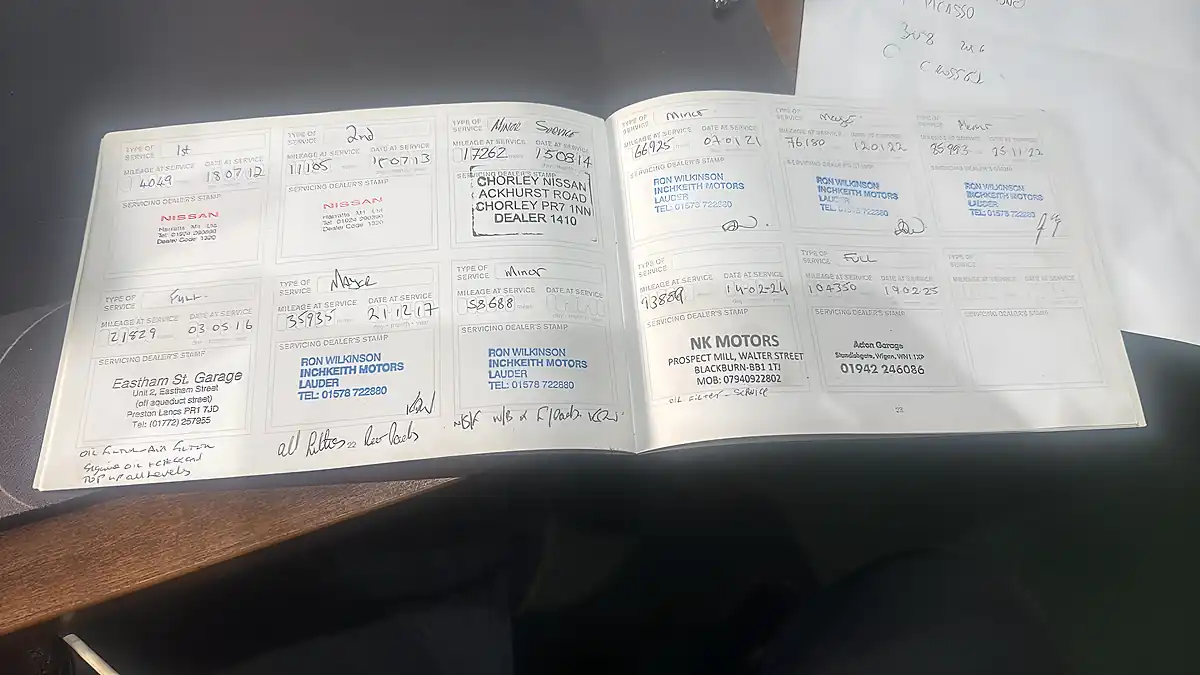 PICASSO
TYPE OF SERVICE 1st
MILEAGE AT SERVICE DATE AT SERVICE
4049 18 07 12
SERVICING DEALER'S STAMP
NISSAN
Dealer Code 1320
TYPE OF SERVICE 2nd
MILEAGE AT SERVICE DATE AT SERVICE
11185 15 07 13
SERVICING DEALER'S STAMP
NISSAN
Dealer Code 1320
TYPE OF SERVICE Minor Service
MILEAGE AT SERVICE DATE AT SERVICE
17262 15 08 14
SERVICING DEALER'S STAMP
CHORLEY NISSAN
ACKHURST ROAD
CHORLEY PR7 1NN
DEALER 1410
TYPE OF SERVICE Full
MILEAGE AT SERVICE DATE AT SERVICE
21829 03 05 16
SERVICING DEALER'S STAMP
Eastham St. Garage
Unit 2, Eastham Street
(off aqueduct street)
Preston Lancs PR1 7JD
Tel: (01772) 257955
OIL FILTER AIR FILTER
TOP UP all Levels
TYPE OF SERVICE Major
MILEAGE AT SERVICE DATE AT SERVICE
35935 21 12 17
SERVICING DEALER'S STAMP
RON WILKINSON
INCHKEITH MOTORS
LAUDER
TEL: 01578 722880
all filters
22
TYPE OF SERVICE Minor
MILEAGE AT SERVICE DATE AT SERVICE
58688
SERVICING DEALER'S STAMP
RON WILKINSON
INCHKEITH MOTORS
LAUDER
TEL: 01578 722880
TYPE OF SERVICE Minor
MILEAGE AT SERVICE DATE AT SERVICE
66925 07 01 21
SERVICING DEALER'S STAMP
RON WILKINSON
INCHKEITH MOTORS
LAUDER
TEL: 01578 722880
TYPE OF SERVICE Major
MILEAGE AT SERVICE DATE AT SERVICE
76180 12 01 22
SERVICING DEALER'S STAMP
RON WILKINSON
INCHKEITH MOTORS
LAUDER
TEL: 01578 722880
TYPE OF SERVICE
MILEAGE AT SERVICE DATE AT SERVICE
85993 25 11 22
SERVICING DEALER'S STAMP
RON WILKINSON
INCHKEITH MOTORS
LAUDER
TEL: 01578 722880
TYPE OF SERVICE
MILEAGE AT SERVICE DATE AT SERVICE
14-02-24
SERVICING DEALER'S STAMP
NK MOTORS
PROSPECT MILL, WALTER STREET
BLACKBURN-BB1 1TJ
MOB: 07940922802
OIL FILTER - SERVICE
TYPE OF SERVICE FULL
MILEAGE AT SERVICE DATE AT SERVICE
104350 19 02 25
SERVICING DEALER'S STAMP
Acton Garage
Standishgate, Wigan, WN1 1XP
01942 246086
TYPE OF SERVICE
MILEAGE AT SERVICE DATE AT SERVICE
SERVICING DEALER'S STAMP
23